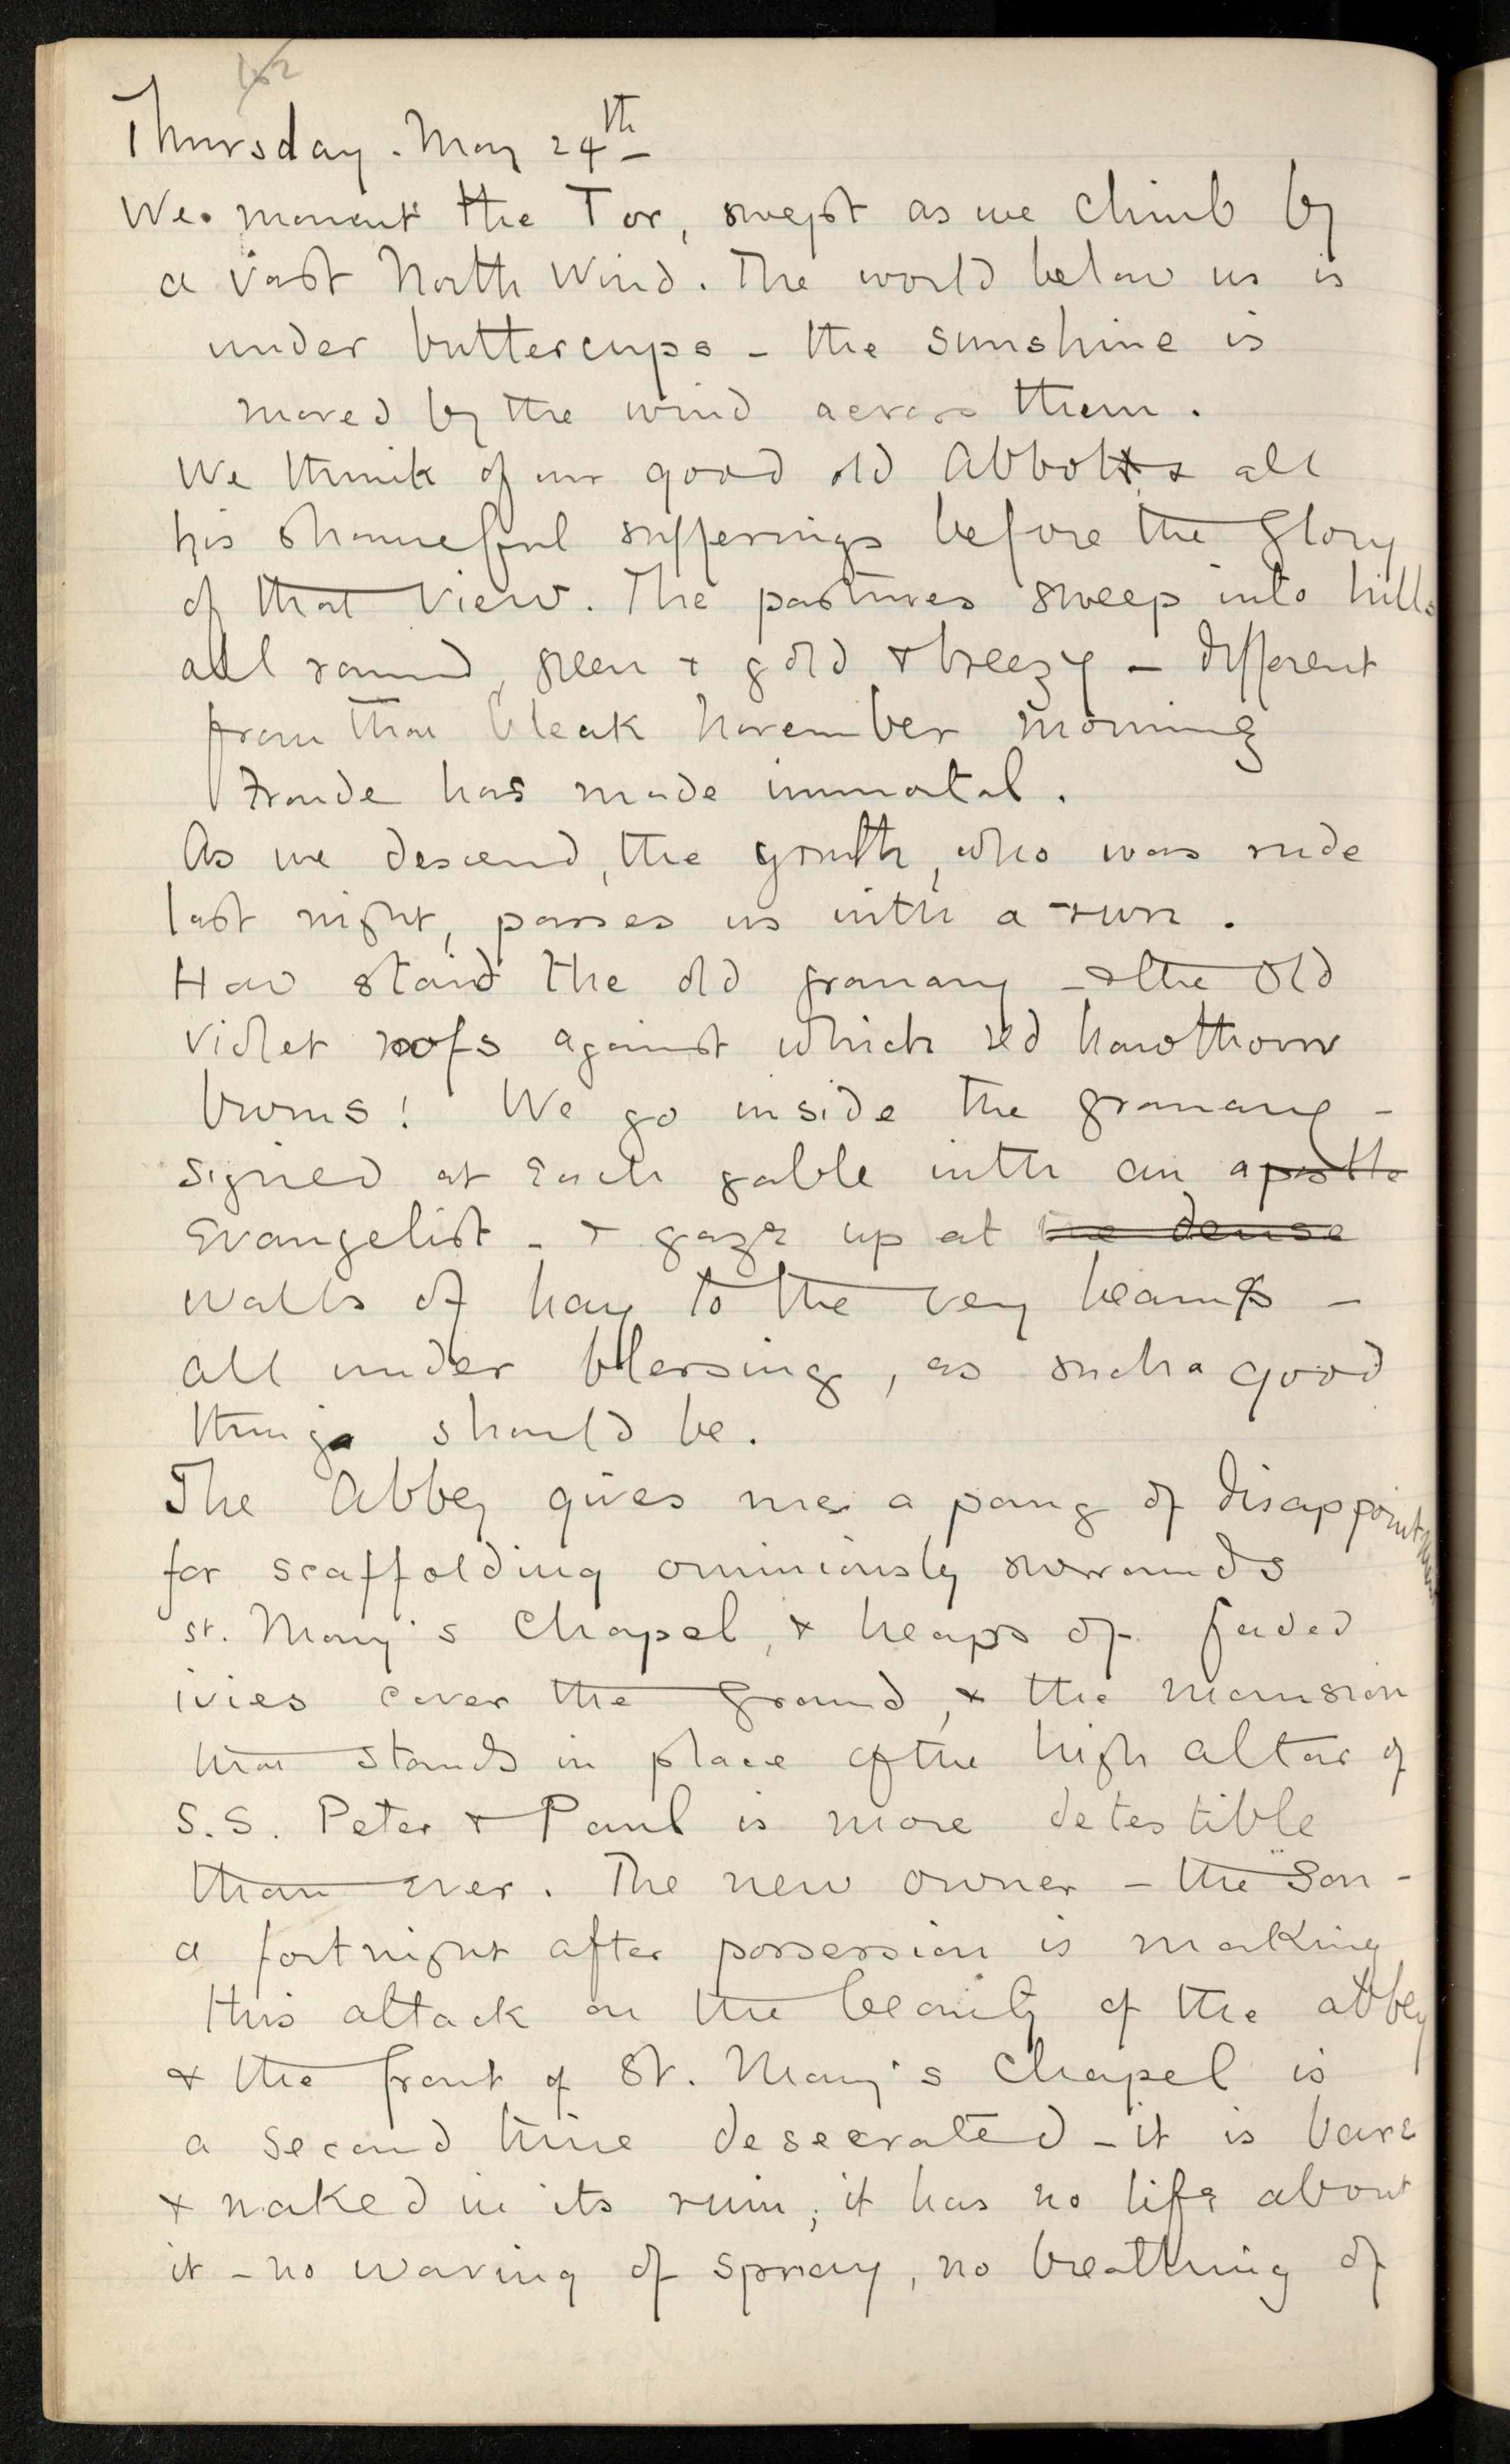 Thursday. May 24th
We mount the Tor, swept as we climb by
a vast North Wind. The world below us is
under buttercups - the sunshine is
moved by the wind across them.
We think of our good old Abbot & all
his shameful sufferings before the glory
of that view. The pastures sweep into hills
all round, green & gold & breezy - different
from that bleak November morning
Froude has made immortal.
As we descend, the youth, who was rude
last night, passes us with a run.
How staid the old granary - & the old
violet roofs against which red hawthorn
burns! We go inside the granary -
signed at each gable with an apostle
Evangelist - & gaze up at the dense
walls of hay to the very beams -
all under blessing, as such a good
things should be.
The Abbey gives me a pang of disappointment
for scaffolding ominiously surrounds
St. Mary's Chapel, & heaps of faded
ivies cover the ground, & the mansion
that stands in place of the high altar of
S.S. Peter & Paul is more detestible
than ever. The new owner - the son -
a fortnight after possession is making
this attack on the beauty of the abbey
& the front of St. Mary's Chapel is
a second time desecrated - it is bare
& naked in its ruin; it has no life about
it - no waving of spray, no breathing of